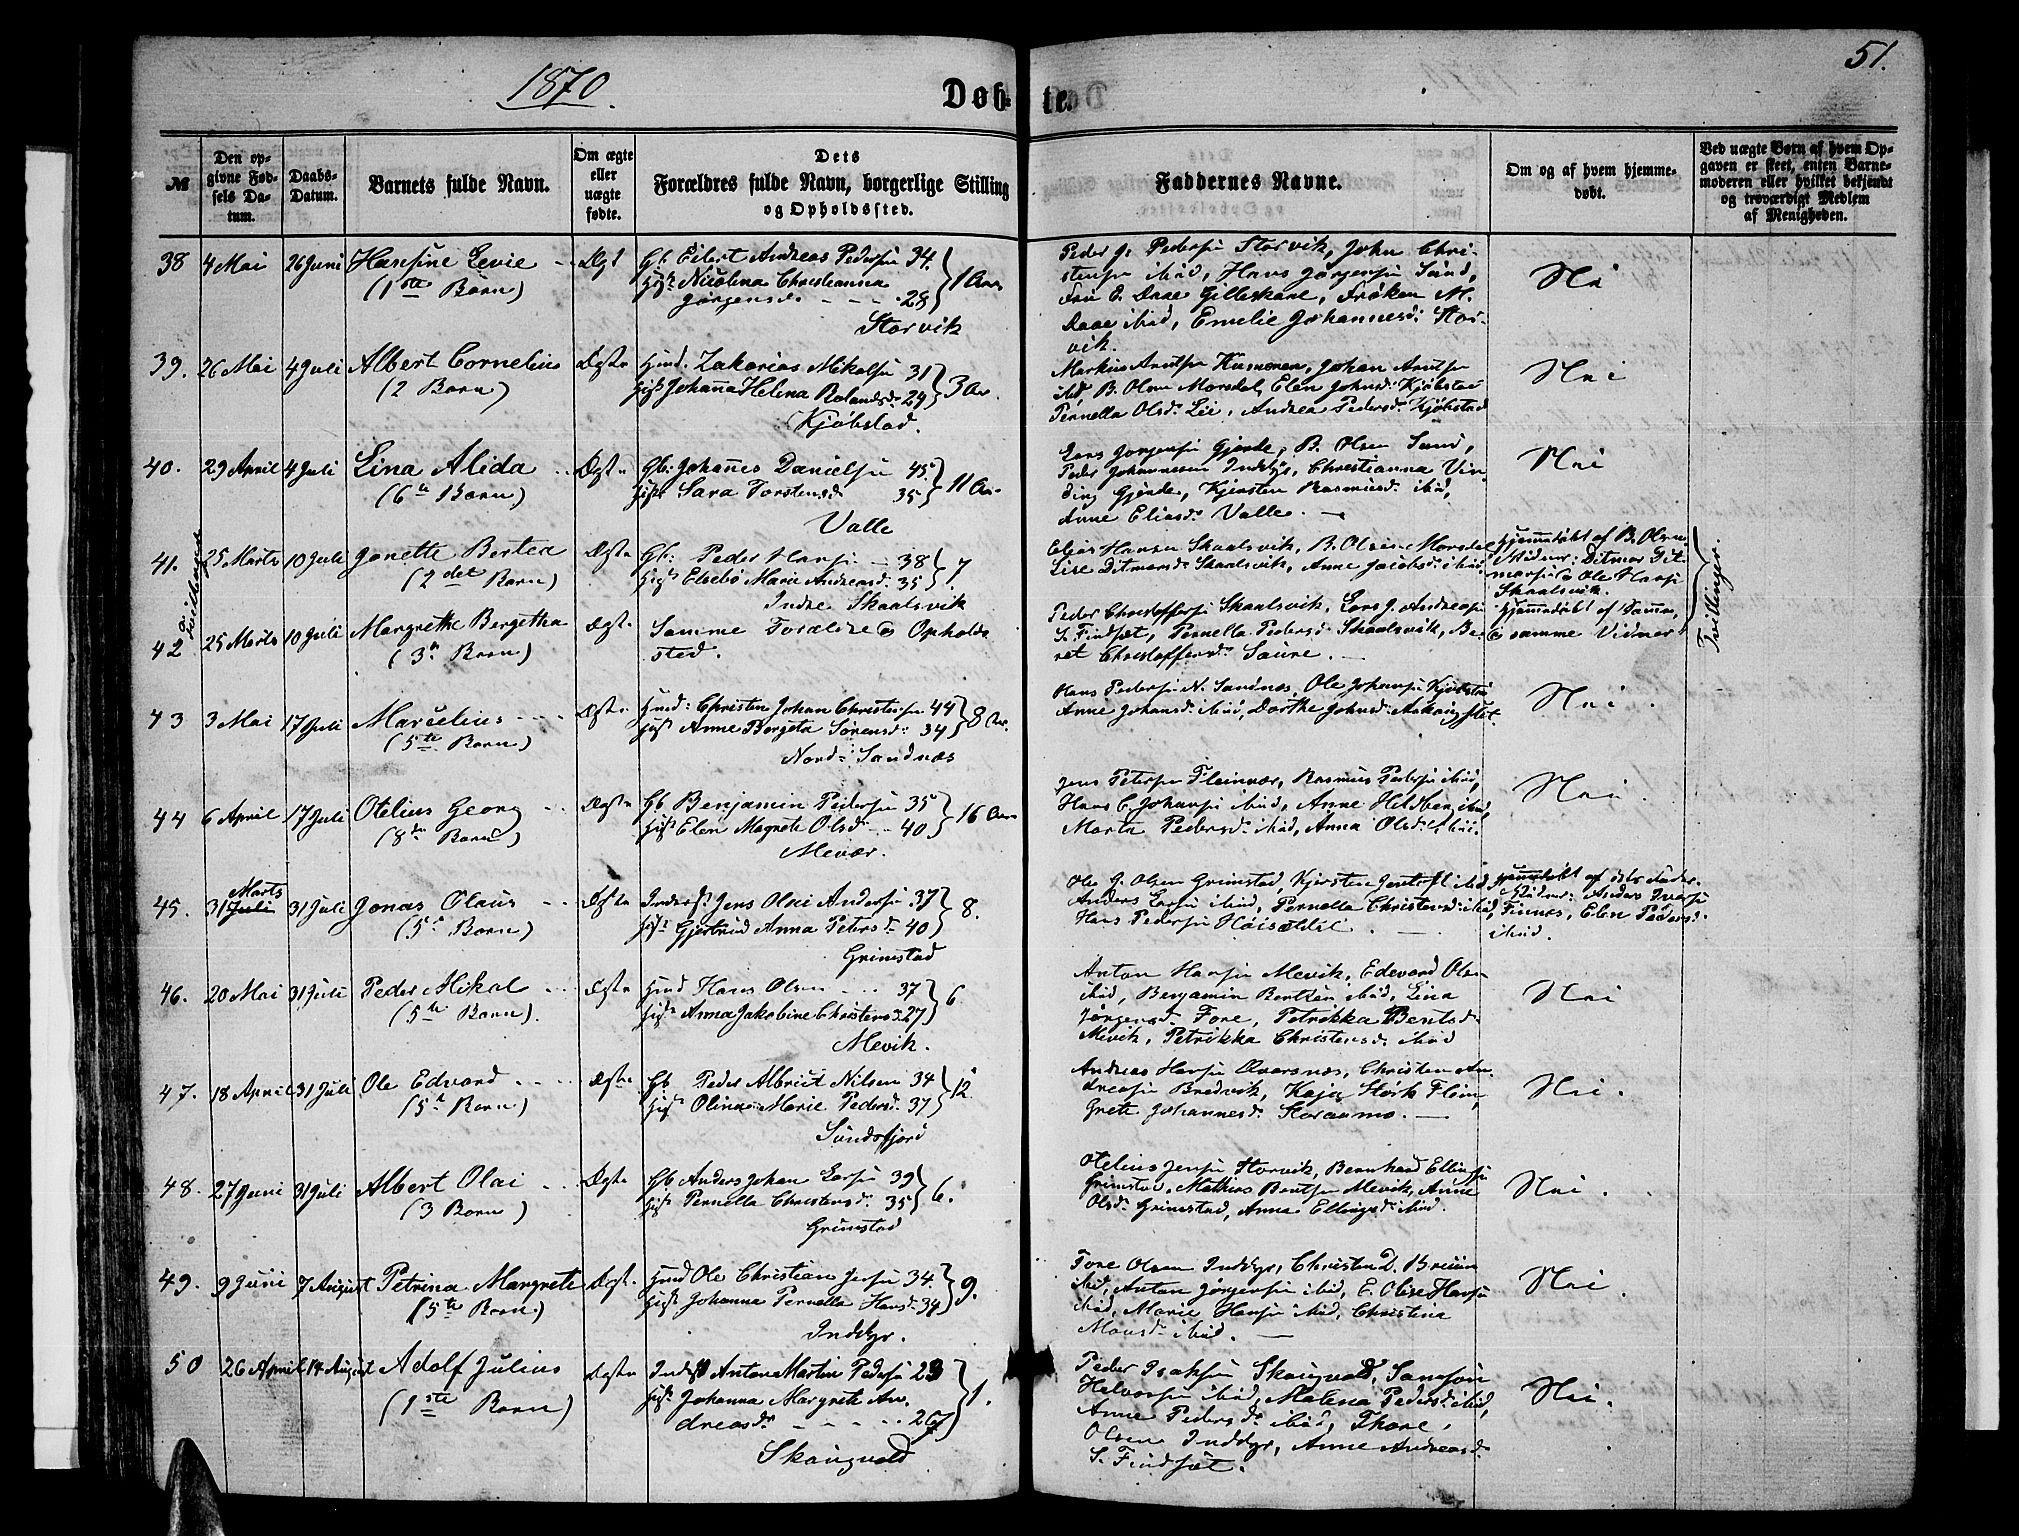 1870.
Døb-
te.
51.
№
Den op-
givne Fød-
sels Da-
tum.
Daabs-
Datum.
Barnets fulde Navn.
Om ægte
eller
uægte
fødte.
Dets
Forældres fulde Navn, borgerlige Stilling
og Opholdssted.
Faddernes Navne.
Om og af hvem hjemme-
døbt.
Ved uægte Børn af hvem Op-
gaven er skeet, enten Barne-
moderen eller hvilket bekjendt
og troværdigt Medlem
af Menigheden.
38 4 Mai 26 Juni Hansine Levie Ægt Gb. Eilert Andreas Pedersen 34.
(1ste Barn) Nicolina Christianna
Jørgensd. 28 1 Aar
Storvik
Peder J. Pedersen Storvik, John Chri-
stensen ibid, Hans Jørgensen Sund,
Fru E. Daae Gilleskaal, Frøken M.
Daae ibid, Emelie Johannesd. Stor-
vik.
Nei
39. 26 Mai 4 Juli Albert Cornelius Ægte Huusd. Zakarias Mikalsen 31
(2 Barn) Johanna Helena Rolandsd. 29 3 Aar.
Kjøbstad.
Markus Arntsen, Johan Arntsen
ibid, B. Olsen Morsdal, Elen Johnsd. Kjøbstad
Pernella Olsd. Lie, Andrea Pedersd. Kjøbstad
Nei
40. 29 April 4 Juli Lina Alida Ægte Gb. Johannes Danielsen 45
(6te Barn) Sara Torstensd. 35 11 Aar
Valle
Lars Jørgensen Gjerde, B. Olsen Sund,
Peder Johannesen Inddyr, Christianna Vin-
ding Gjerde, Kjersten Rasmusd. ibid,
Anne Eliasd. Valle.
Nei
41. 25 Marts 10 Juli Jonette Bertea Ægte Gb. Peder Hansen 38
(2det Barn) Elsebø Marie Andreasd. 35 7
Indre Skaalsvik
Elias Hansen Skaalsvik, B. Olsen Morsdal
Lise Ditmarsd. Skaalsvik, Anne Jacobsd. ibid.
hjemmedøbt af B. Olsen
Vidner: Ditmar Dit-
marsen & Ole Hansen
Skaalsvik.
Tvillinger.
42 25 Marts 10 Juli Margrethe Bergetha Ægte Samme Forældre & Opholds-
(3 Barn) sted.
Peder Christoffersen Skaalsvik, Lars J. Andreasen
S. Findset, Pernella Pedersd. Skaalsvik, Be-
ret Christoffersd. Saure.
hjemmedøbt af Samme,
& samme Vidner
43 3 Mai 17 Juli Marselius Ægte Huusd: Christen Johan Christensen 44
(5te Barn) Anne Bergeta Sørensd: 34 8 Aar.
Nord: Sandnæs
Hans Pedersen N. Sandnæs, Ole Johansen Kjøbstad
Anne Johansd. ibid, Dorthe Johnsd.
Nei.
44 6 April 17 Juli Otelius Georg Ægte Gb Benjamin Pedersen 35
(8de Barn) Elen Magrete Olsd. 40 16 Aar
Mevær.
Jens Petersen Fleinvær, Rasmus Pedersen ibid,
Hans E. Johansen ibid, Anne Heldben ibid,
Marta Pedersd. ibid, Anna Olsd. ibid.
Nei.
45. 31 Marts Juli 31 Juli Jonas Olaus Ægte Jens Olai Andersen 37
(5 Barn) Gjertrud Anna Petersd. 40 8.
Grimstad
Ole J. Olsen Grimstad, Kjersten Jentoft ibid,
Anders Larsen ibid, Pernella Christensd. ibid,
Hans Pedersen
hjemmedøbt af dets Fader.
Vidner: Anders Ivarsen
Finnes, Elen Pedersd.
ibid.
46. 20 Mai 31 Juli Peder Mikal Ægte Huusd Hans Olsen 37
(5te Barn). Anna Jakobine Christensd. 27 6
Mevik.
Anton Hansen Mevik, Edevard Olsen
ibid, Benjamin Bentsen ibid, Lina
Jørgensd. Fore, Petrikka Bentsd.
Mevik, Petrikka Christensd. ibid
Nei
47. 18 April 31 Juli Ole Edvard Ægte Gb Peder Albrigt Nilsen 34
(5te Barn) Olinna Marie Pedersd. 37 12
Sundsfjord
Andreas Hansen Øvarsnæs, Christen An-
dreasen Bredvik, Kaja Størk Flein,
Grete Johannesd. Storaamo.
Nei.
48. 27 Juni 31 Juli Albert Olai Ægte Gb Anders Johan Larsen 39
(3 Barn) Pernella Christensd. 35 6.
Grimstad
Otelius Jensen Storvik, Bernhard Ellingsen
Grimstad, Mathias Bentsen Mevik, Anne
Olsd. Grimstad, Anna Ellingsd. ibid.
Nei.
49. 9 Juni 7 August Petrina Margrete Ægt. Huusd Ole Christian Jensen 34.
(5te Barn) Johanna Pernella Hansd. 34 9.
Inddyr.
Tore Olsen Inddyr, Christen D. Breiim
ibid, Anton Jørgensen ibid, E. Olise Hansen
ibid, Marie Hansen ibid, Christina
Monsd. ibid.
Nei.
50 26 April 14 August Adolf Julius Ægte Anton Martin Pedersen 23
(1ste Barn) Johanna Margrete An-
dreasd. 26 1.
Skaugvold
Peder Isaksen Skaugvold, Samson
Halvorsen ibid, Malena Pedersd. ibid,
Anne Pedersd. ibid, Thore
Olsen Inddyr, Anne Andreasd.
S. Findset.
Nei.